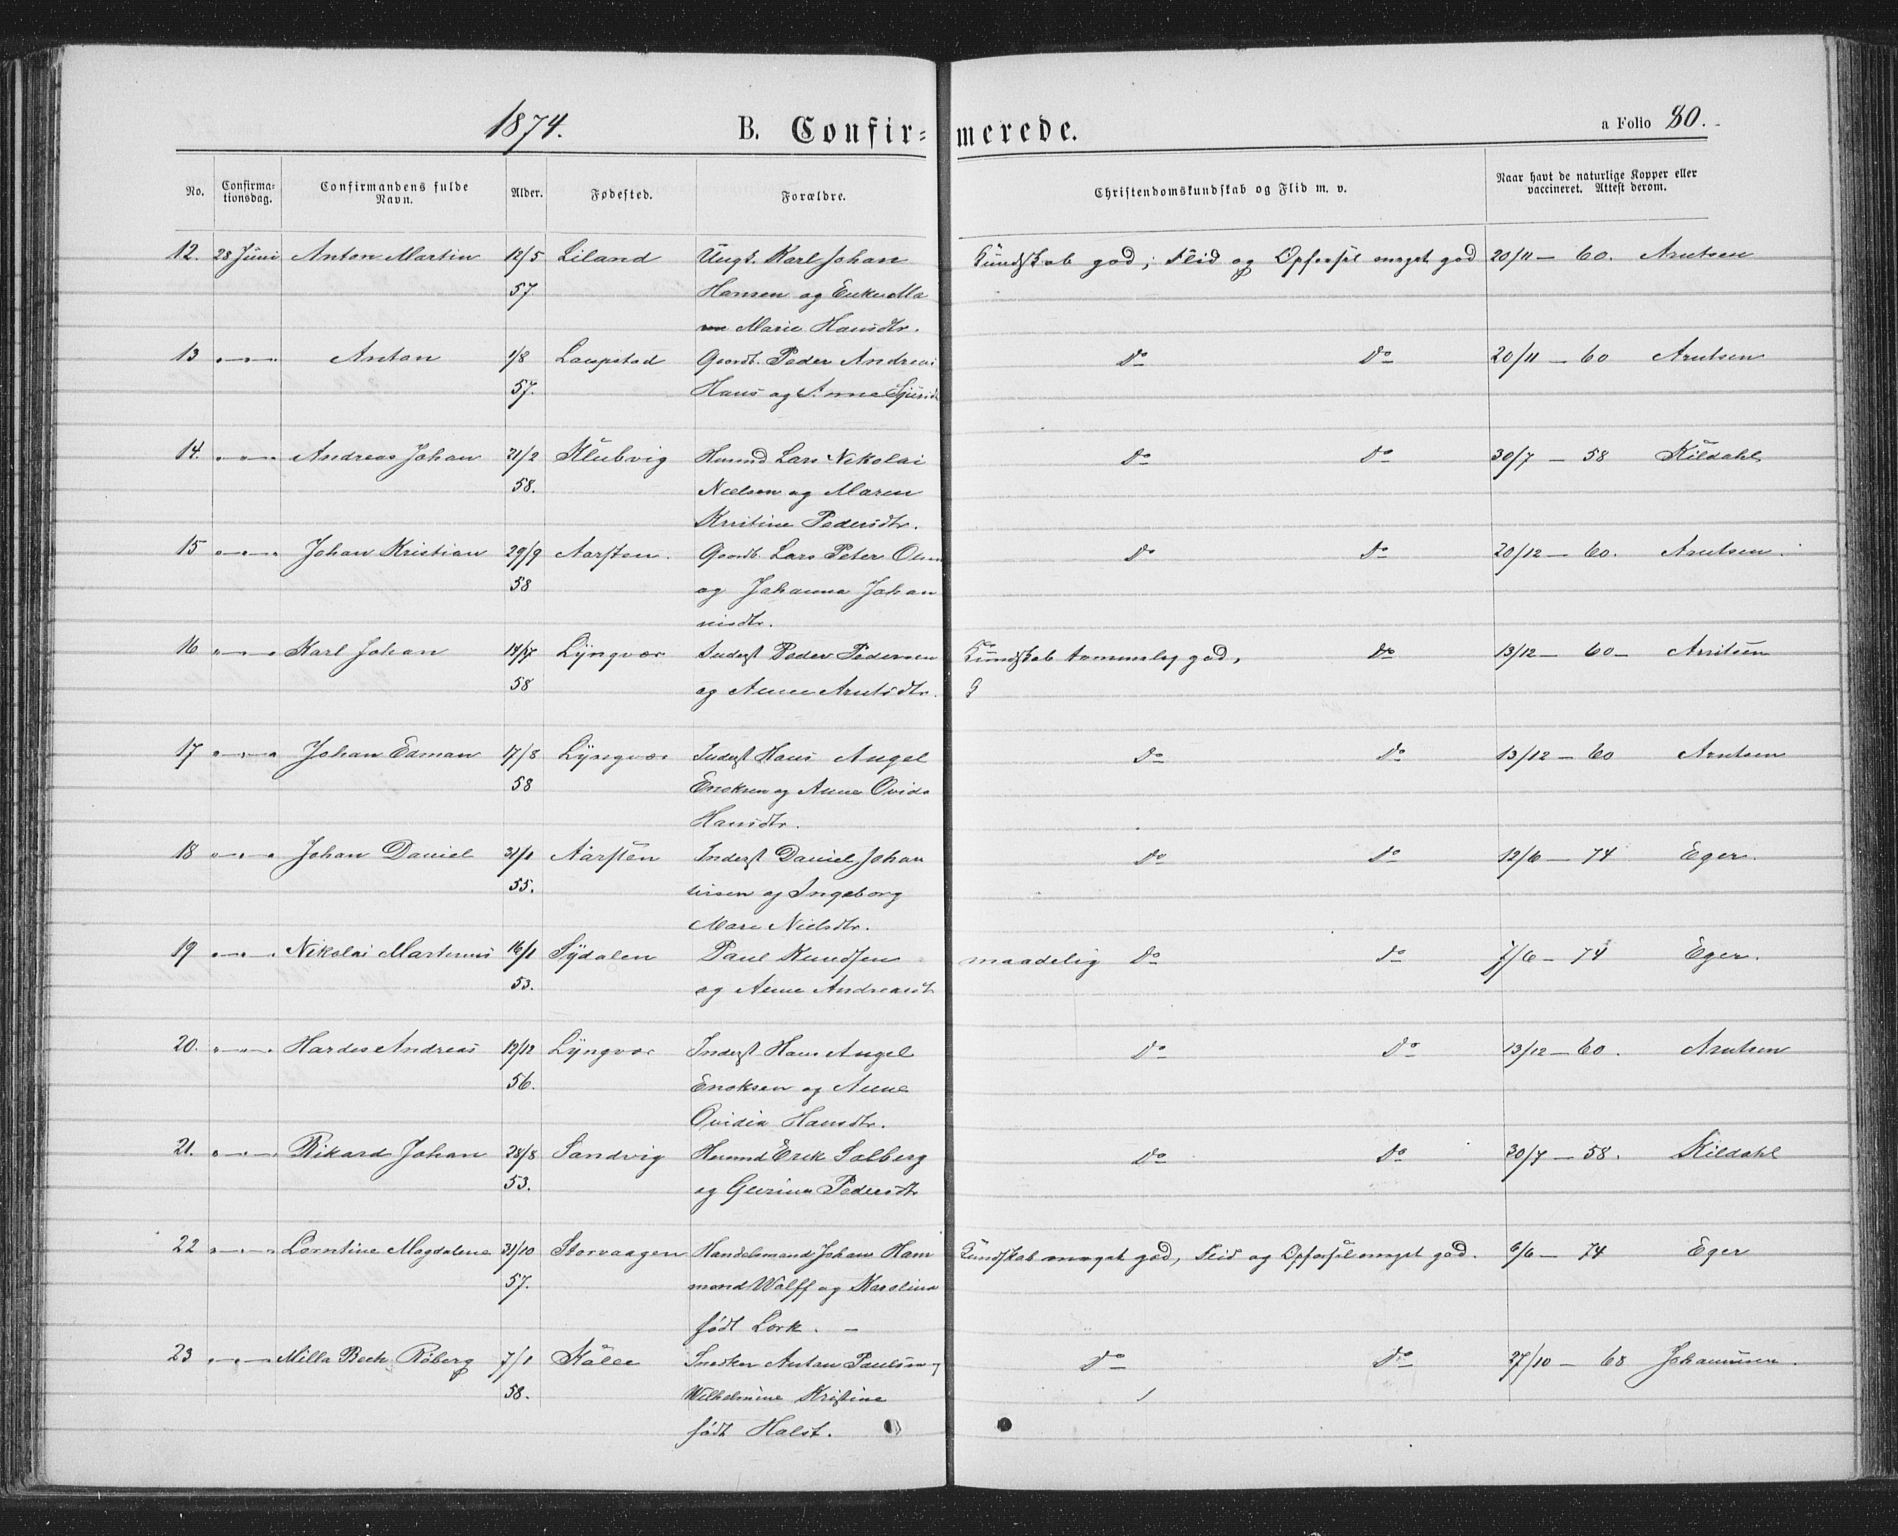 1874. B. Confirmerede. a Folio 80.
No. Confirmationsdag. Confirmandens fulde Navn. Alder. Fødested. Forældre. Christendomskundskab og Flid m. v. Naar havt de naturlige Kopper eller vaccineret. Attest derom.
12. 28 Juni Anton Martin 12/5 Liland Ungk. Karl Johan Kundskab god; Flid og Opførsel meget god 20/11 — 60. Arntsen
57. Hansen og Enke Ma
Marie Hansdtr.
13 " — " Anton 1/8 Laupstad Gaardb. Peder Andreas Do Do 20/11 — 60 Arntsen
57. Hans og Anne
14. " — " Andreas Johan 21/2 Klubvig Husmd Lars Nikolai Do Do 30/7 — 58 Kildahl
58. Nielsen og Maren
Kristine Pedersdtr.
15 " — " Johan Kristian 29/9 Aarsten. Gaardb. Lars Peter Olsen Do Do 20/12 — 60. Arntsen.
58 og Johanna Johan
nisdtr.
16 " — " Karl Johan Lyngvær Inderst Peder Pedersen Kundskab temmelig god, Do 13/12 — 60 — Arntsen
58 og Anne Arntsdtr.
17 " — " Johan Edman 17/8 Lyngvær Inderst Hans Angel Do Do 13/12 — 60 Arntsen
58 Enoksen og Anne Ovida
Hansdtr.
18 " — " Johan Daniel 31/1 Aarsten Inderst Daniel Johan Do Do 12/6 — 74 Eger.
55. nesen og Ingeborg
Mare Nielsdtr.
19 " — " Nikolai Martinus 16/1 Sydalen Paul Knudsen maadelig Do Do 7/6 — 74 Eger.
53. og Anne Andreasdt
20. " — " Hardes Andreas 12/12 Lyngvær Inderst Hans Angel Do Do 13/12 — 60. Arntsen
56. Enoksen og Anne
Ovidia Hansdtr.
21. " — " Rikard Johan 28/8 Sandvig Husmd Erik Solberg Do Do 20/7 — 58. Kildahl
53. og Gurina Pedersdtr
22 " — " Lorntine Magdalene 31/10 Storvaagen Handelsmand Johan Ham Kundskab meget god, Flid og Opførsel meget god. 6/6 — 74 Eger
57. mond Wolff og Karolina
født Lork. —
23 " — " Milla Beck Røberg 7/1 Kalle Snedker Anton Paulsen og Do Do 27/10 — 68 Johannesen.
58. Wilhelmine Kristine
født Halst.